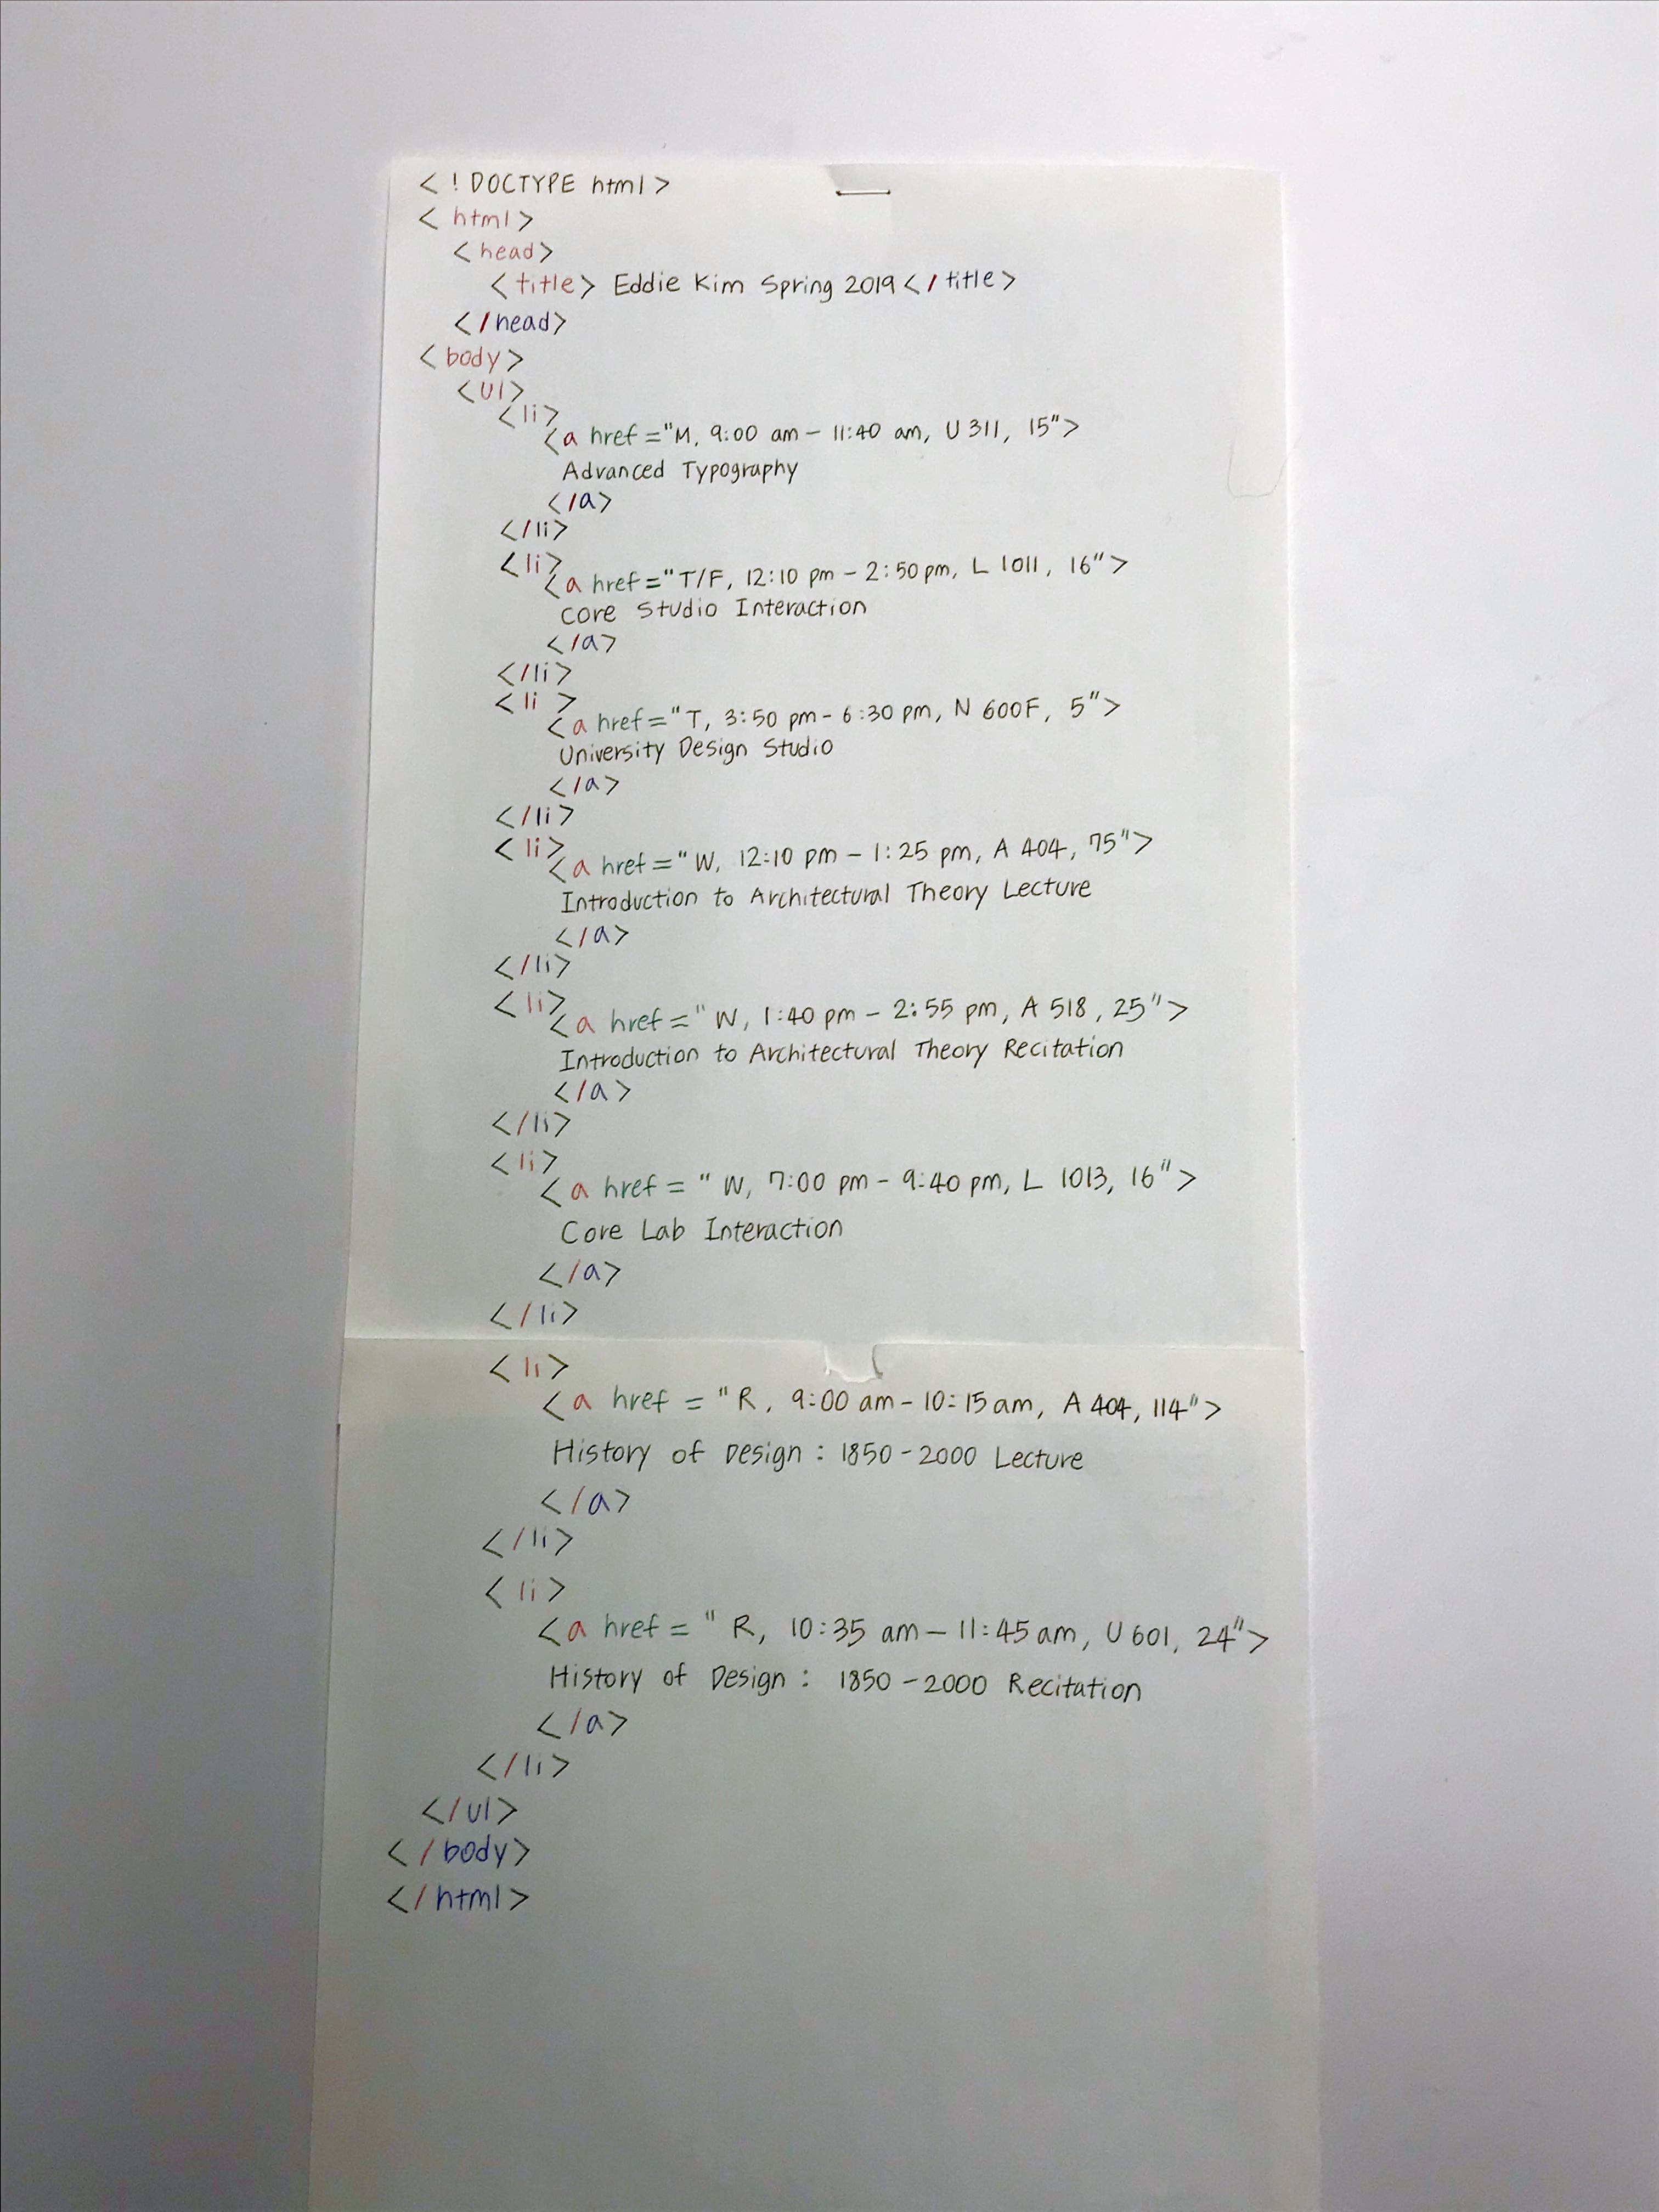 <!DOCTYPE html>
<html>
<head>
<title> Eddie Kim Spring 2019</title>
</head>
<body>
<ul>
<li>
<a href="M, 9:00 am - 11:40 am, U 311, 15">
Advanced Typography
</a>
</li>
<li>
<a href="T/F, 12:10 pm - 2:50 pm, L 1011, 16">
Core Studio Interaction
</a>
</li>
<li>
<a href="T, 3:50 pm - 6:30 pm, N 600F, 5">
University Design Studio
</a>
</li>
<li>
<a href="W, 12:10 pm - 1:25 pm, A 404, 75">
Introduction to Architectural Theory Lecture
</a>
</li>
<li>
<a href="W, 1:40 pm - 2:55 pm, A 518, 25">
Introduction to Architectural Theory Recitation
</a>
</li>
<li>
<a href="W, 7:00 pm - 9:40 pm, L 1013, 16">
Core Lab Interaction
</a>
</li>
<li>
<a href="R, 9:00 am - 10:15 am, A 404, 114">
History of Design: 1850-2000 Lecture
</a>
</li>
<li>
<a href="R, 10:35 am - 11:45 am, U 601, 24">
History of Design: 1850-2000 Recitation
</a>
</li>
</ul>
</body>
</html>